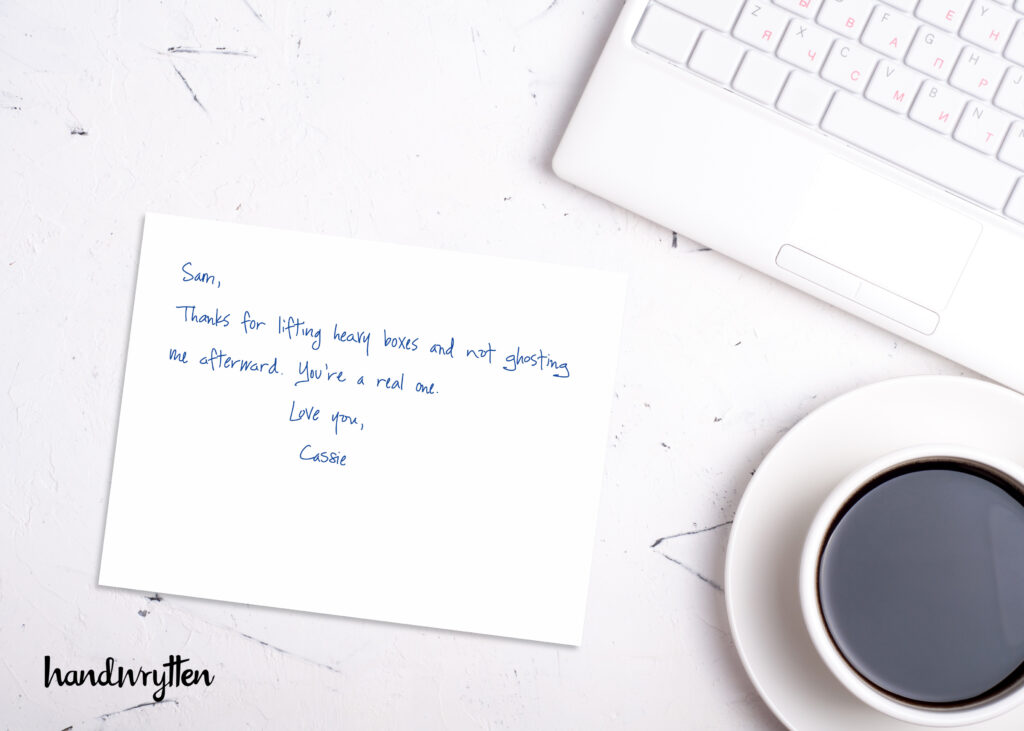 Sam,
Thanks for lifting heavy boxes and not ghosting
me afterward. You're a real one.
Love you,
Cassie
handwrytten
Z Я
X Ч
C С
V М
B И
N Т
Ы
В
F А
G П
H Р
J
E
Y Н